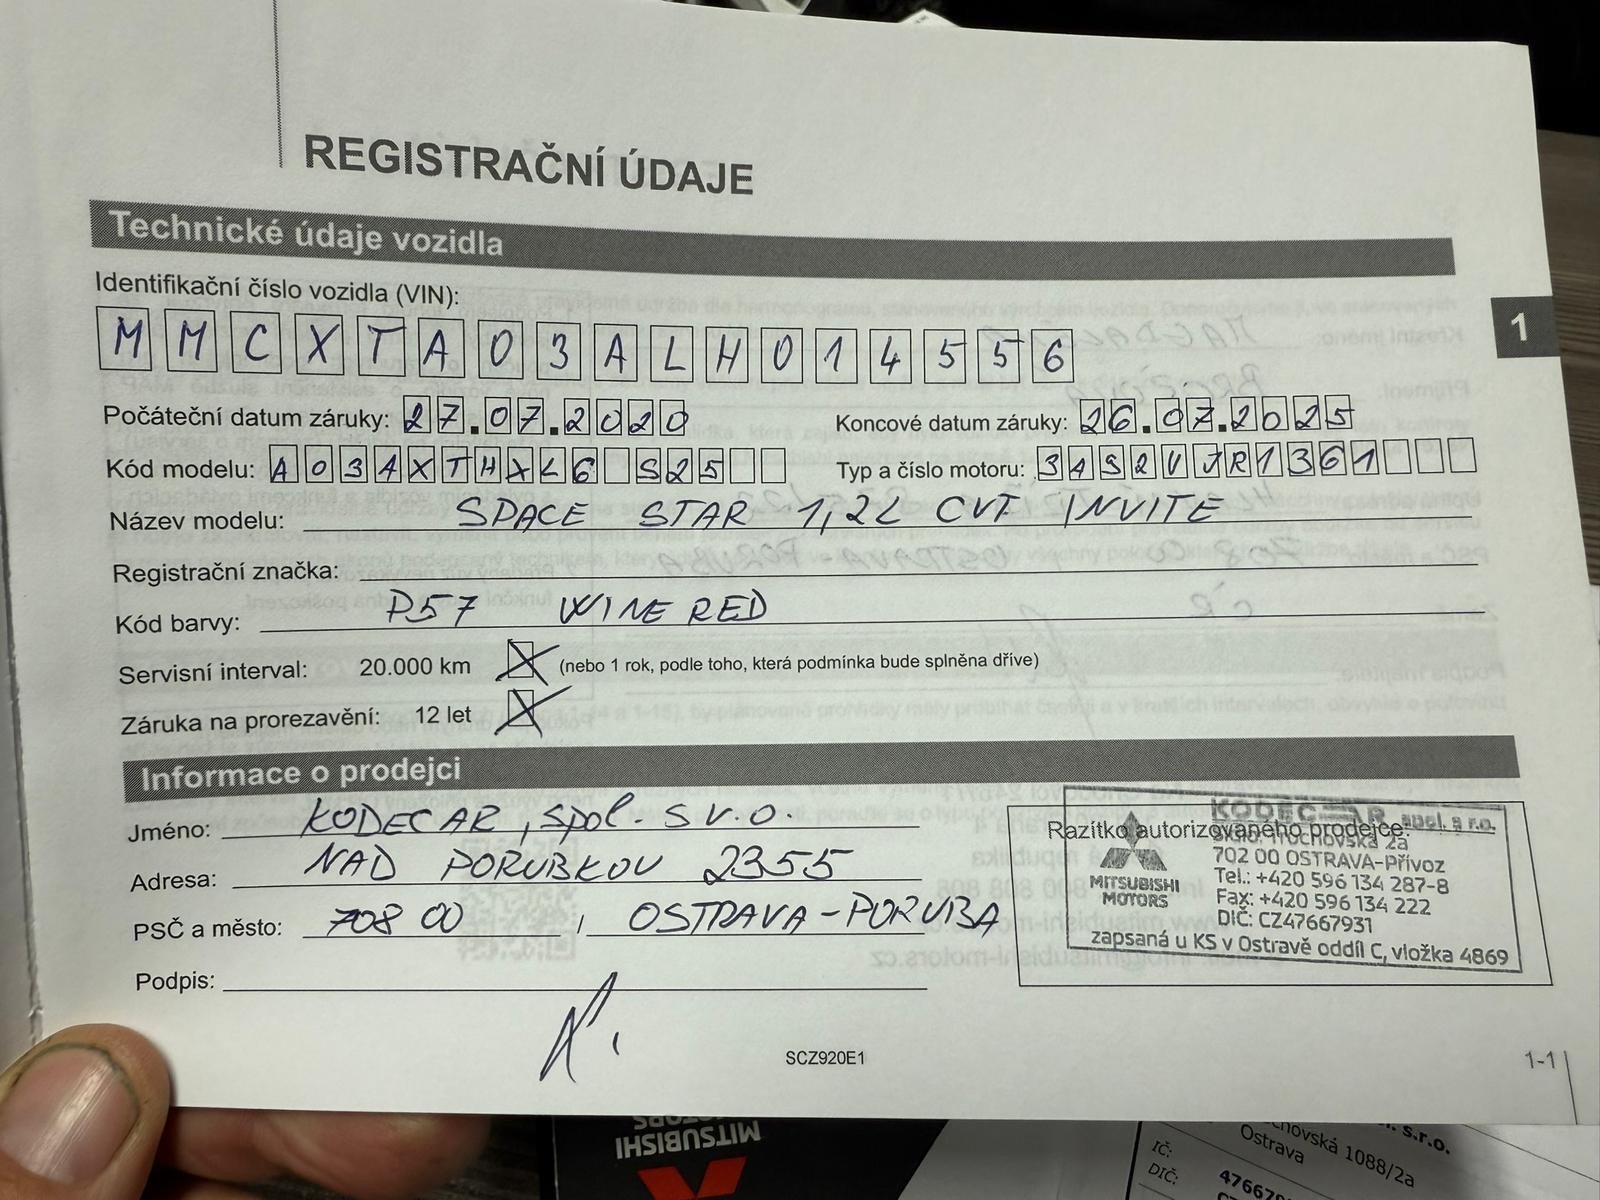 REGISTRAČNÍ ÚDAJE
Technické údaje vozidla
Identifikační číslo vozidla (VIN):
M M C X T A 0 3 A L H 0 1 4 5 5 6
1
Počáteční datum záruky: 27.07.2020 Koncové datum záruky: 26.07.2025
Kód modelu: A03AXTHXL6 S25 Typ a číslo motoru: 3A92UJR1361
Název modelu: SPACE STAR 1,2L CVT INVITE
Registrační značka:
Kód barvy: P57 WINE RED
Servisní interval: 20.000 km (nebo 1 rok, podle toho, která podmínka bude splněna dříve)
Záruka na prorezavění: 12 let
Informace o prodejci
Jméno: KODECAR, spol. s r.o.
Adresa: NAD PORUBKOU 2355
PSČ a město: 708 00, OSTRAVA-PORUBA
Podpis:
Razítko autorizovaného prodejce:
KODECAR spol. s r.o.
MITSUBISHI MOTORS
702 00 OSTRAVA-Přívoz
Tel.: +420 596 134 287-8
Fax: +420 596 134 222
DIČ: CZ47667931
zapsaná u KS v Ostravě oddíl C, vložka 4869
SCZ920E1
1-1
MITSUBISHI
MOTORS
s.r.o.
1088/2a
Ostrava
IČ:
DIČ: